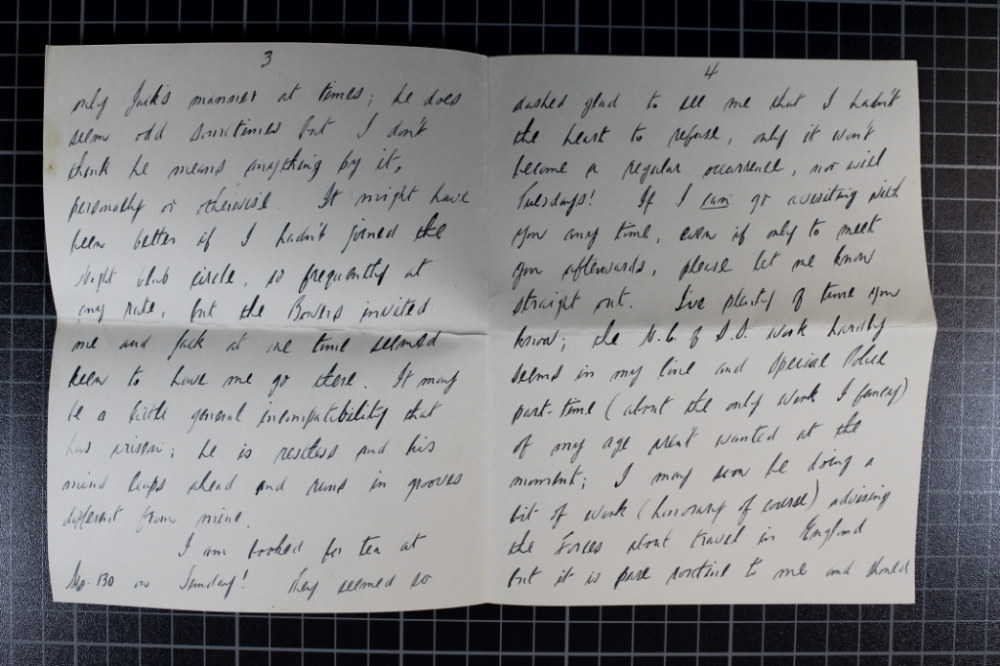 3
only Jack's manner at times; he does
seem odd sometimes but I don't
think he means anything by it,
personally or otherwise. It might have
been better if I hadn't joined the
Night Club circle, so frequently at
any rate, but the Bowers invited
me and Jack at one time seemed
keen to have me go there. It may
be a little general incompatibility that
has arisen; he is restless and his
mind leaps ahead and runs in grooves
different from mine.
I am booked for tea at
No. 130 on Sunday! They seemed so
4
dashed glad to see me that I hadn't
the heart to refuse, only it won't
become a regular occurrence, nor will
Tuesdays! If I can go avisiting with
you any time, even if only to meet
you afterwards, please let me know
straight out. I've plenty of time you
know; the work hardly
seems in my line and Special Police
part-time (about the only work I fancy)
of my age aren't wanted at the
moment; I may soon be doing a
bit of work (honorary of course) advising
the Forces about travel in England
but it is pure routine to me and should